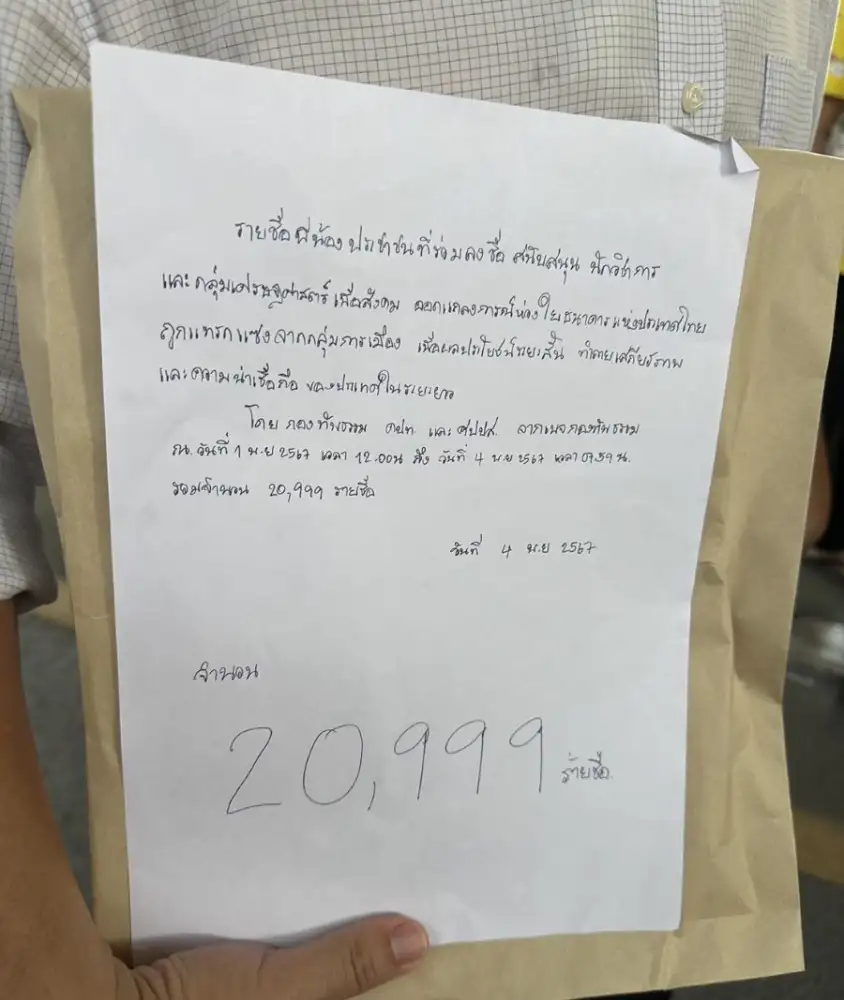 รายชื่อพี่น้องประชาชนที่ร่วมลงชื่อ สนับสนุน นักวิชาการ
และกลุ่มเศรษฐศาสตร์เพื่อสังคม ออกแถลงการณ์ห่วงใยธนาคารแห่งประเทศไทย
ถูกแทรกแซงจากกลุ่มการเมือง เพื่อผลประโยชน์ระยะสั้น ทำลายเสถียรภาพ
และความน่าเชื่อถือ ของประเทศในระยะยาว
โดย กองทัพธรรม คปท. และ ศปปส. จากเพจกองทัพธรรม
ณ. วันที่ 1 พ.ย 2567 เวลา 12.00น ถึง วันที่ 4 พ.ย 2567 เวลา 07.59 น.
รวมจำนวน 20,999 รายชื่อ
วันที่ 4 พ.ย 2567
จำนวน
20,999 รายชื่อ